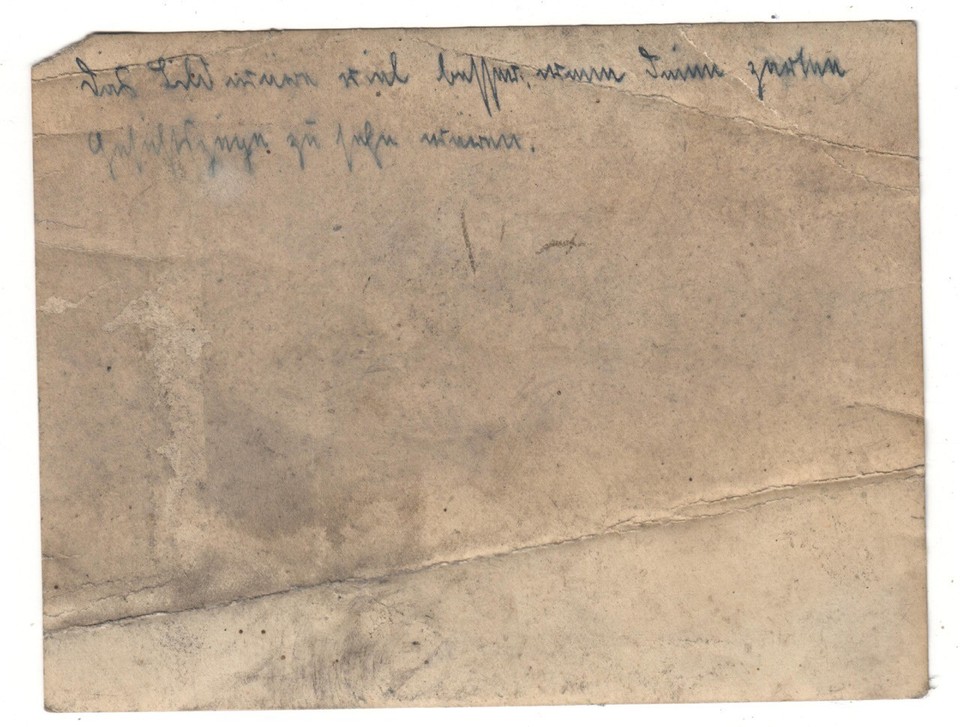 Das Bild wäre viel besser, wenn Deine zarten
Gesichtszüge zu sehn wären.